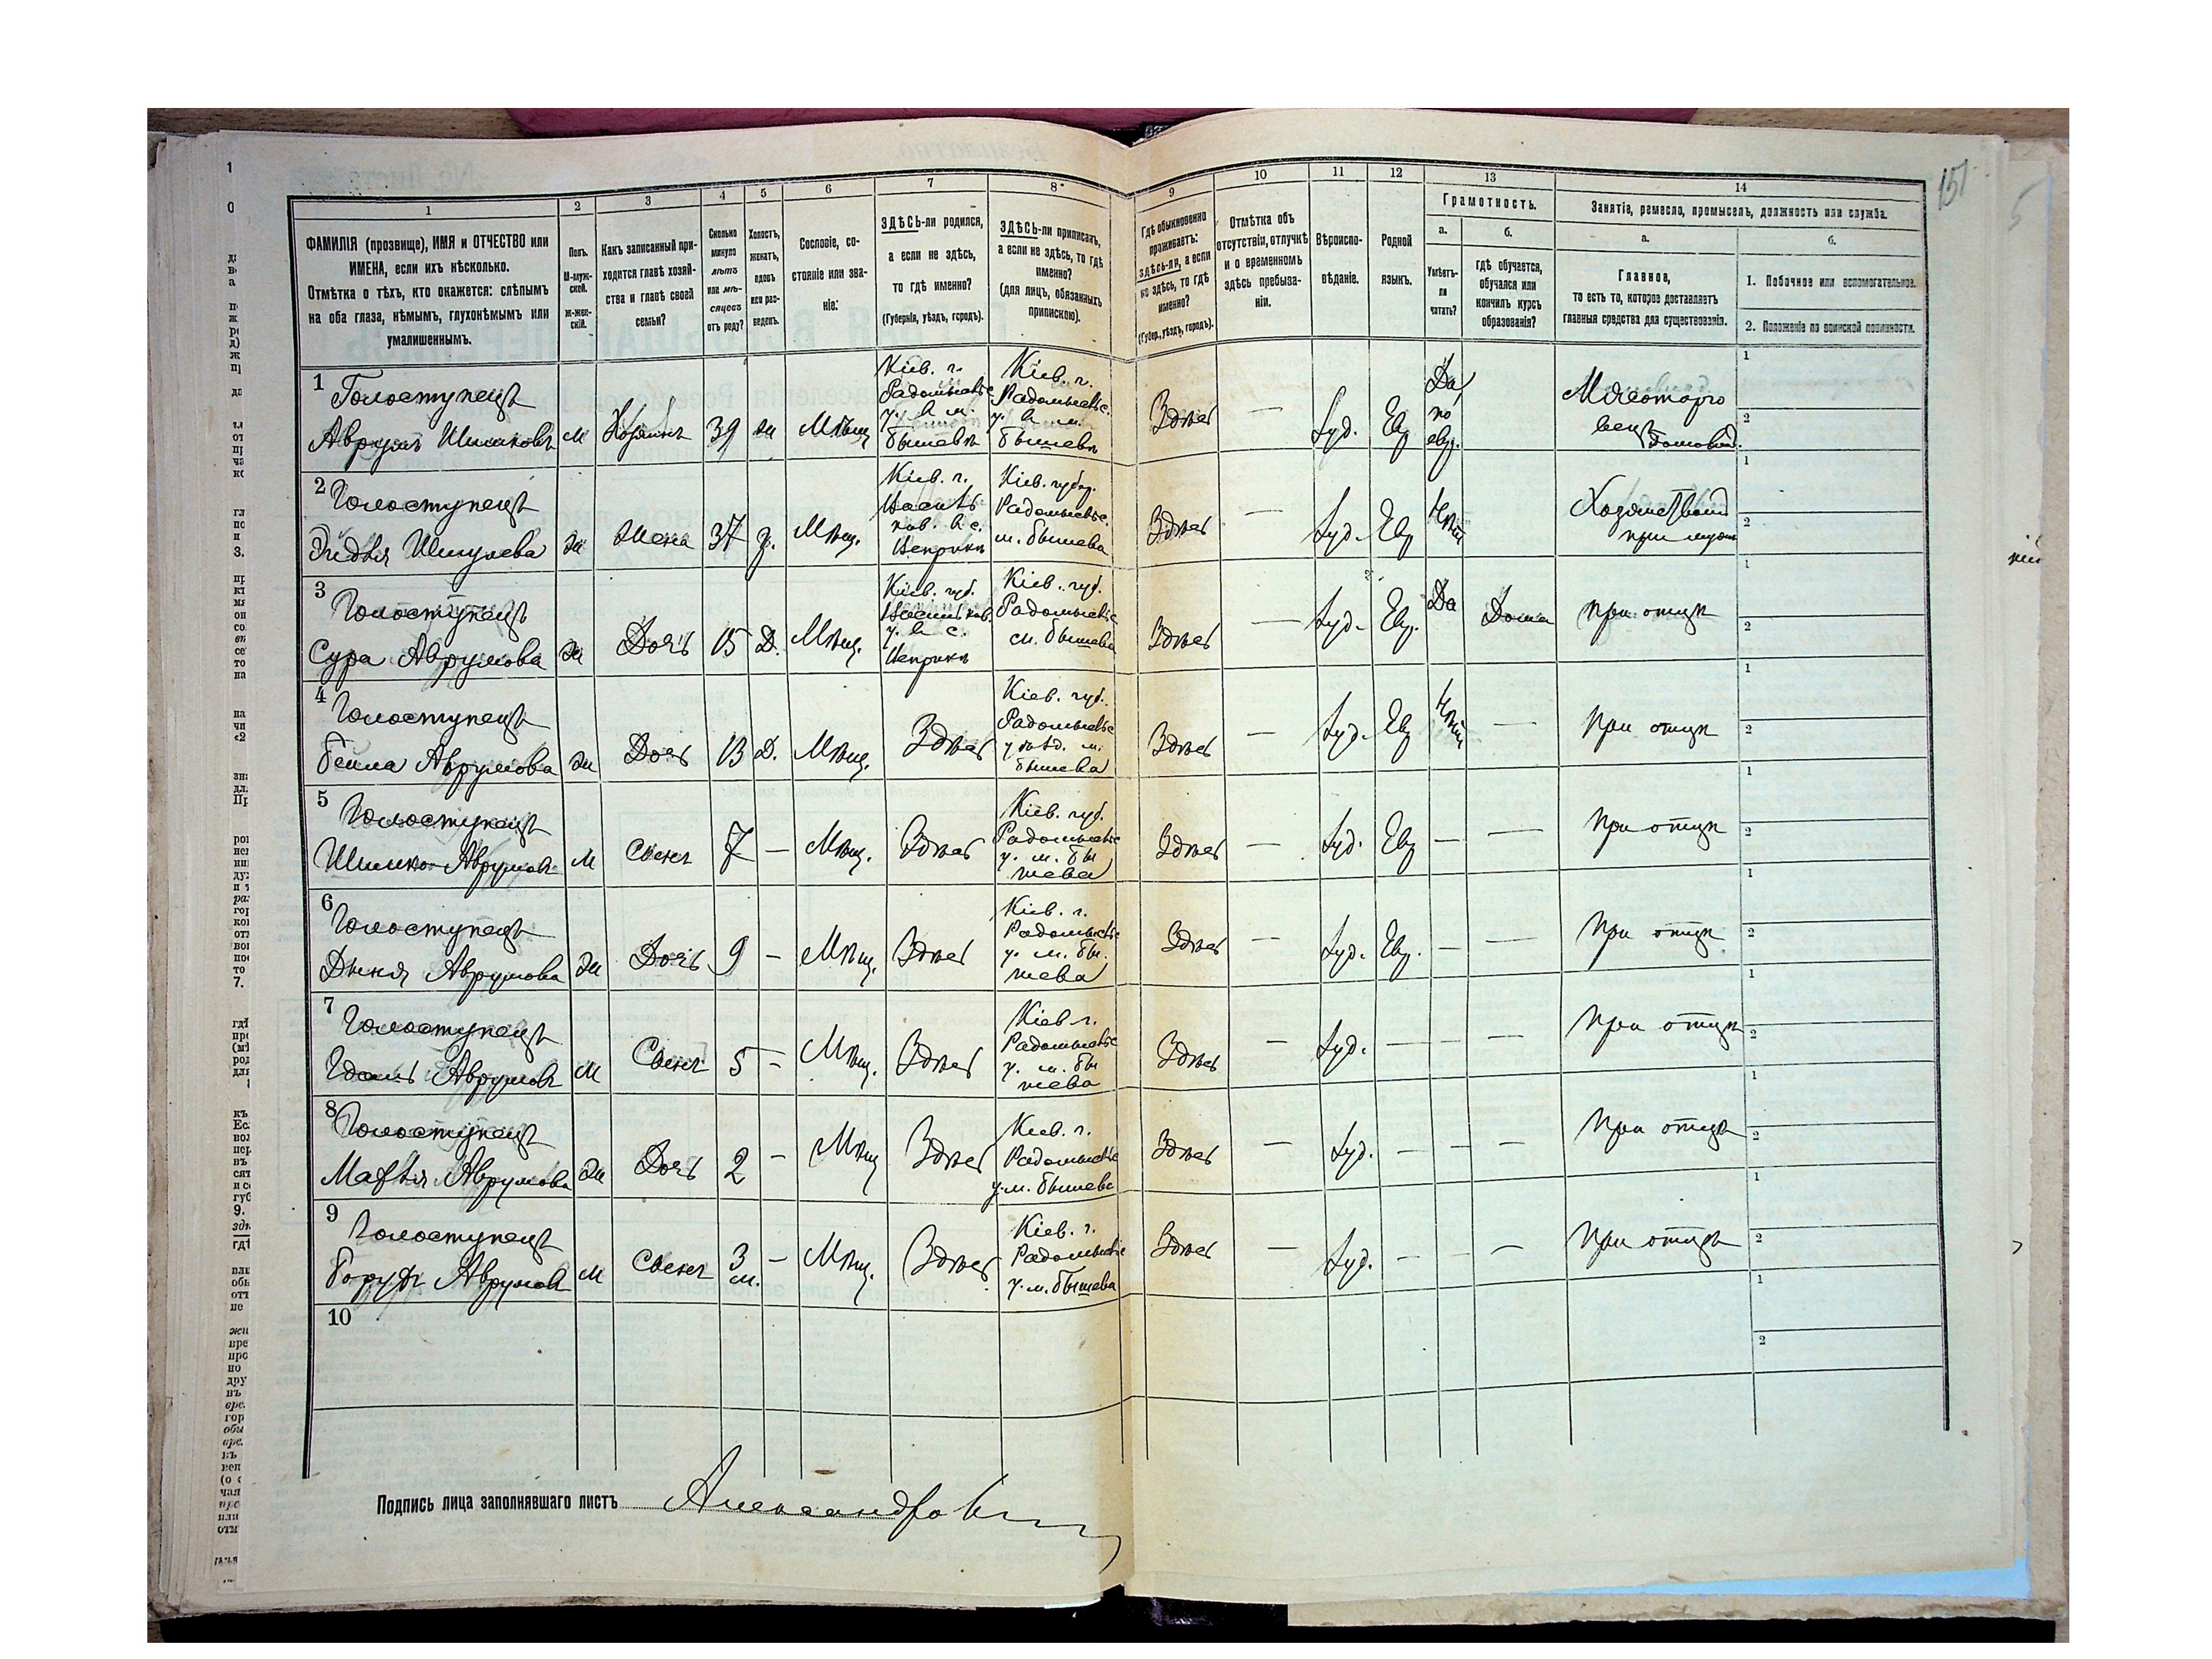 151
1 2 3 4 5 6 7 8 9 10 11 12 13 14
ФАМИЛІЯ (прозвище), ИМЯ и ОТЧЕСТВО или
ИМЕНА, если ихъ нѣсколько.
Отмѣтка о тѣхъ, кто окажется: слѣпымъ
на оба глаза, нѣмымъ, глухонѣмымъ или
умалишеннымъ.
Полъ.
М-муж-
ской.
ж-жен-
скій.
Какъ записанный при-
ходится главѣ хозяй-
ства и главѣ своей
семьи?
Сколько
минуло
лѣтъ
или мѣ-
сяцевъ
отъ роду?
Холостъ,
женатъ,
вдовъ
или раз-
веденъ.
Сословіе, со-
стояніе или зва-
ніе:
ЗДѢСЬ-ли родился,
а если не здѣсь,
то гдѣ именно?
(Губернія, уѣздъ, городъ).
ЗДѢСЬ-ли приписанъ,
а если не здѣсь, то гдѣ
именно?
(для лицъ, обязанныхъ
припискою).
Гдѣ обыкновенно
проживаетъ:
здѣсь-ли, а если
не здѣсь, то гдѣ
именно?
(Губер., уѣздъ, городъ).
Отмѣтка объ
отсутствіи, отлучкѣ
и о временномъ
здѣсь пребыва-
ніи.
Вѣроиспо-
вѣданіе.
Родной
языкъ.
Грамотность.
а.
Умѣетъ-
ли
читать?
б.
гдѣ обучается,
обучался или
кончилъ курсъ
образованія?
Занятіе, ремесло, промыселъ, должность или служба.
а.
Главное,
то есть то, которое доставляетъ
главныя средства для существованія.
б.
1. Побочное или вспомогательное.
2. Положеніе по воинской повинности.
1 Голоступецъ
Аврумъ Шимковъ м Хозяинъ 39 ж Мѣщ
Кіев. г.
Радомысльс.
у. в м.
Бышевѣ
Кіев. г.
Радомысльс.
у. в м.
Бышевѣ
Здѣсь — Іуд. Евр
Да,
по
евр.
Мясоторго
вецъ
1
2
2 Голоступецъ
Шмулева ж Жена 37 з. Мѣщ.
Кіев. г.
Василь
ков. в с.
Кіев. губер.
Радомысльс.
м. Бышева
Здѣсь — Іуд. Евр Нѣтъ
при мужѣ
1
2
3 Голоступецъ
Сура Аврумова ж Дочь 15 Д. Мѣщ.
Кіев. губ.
Васильков.
у. в с.
Кіев. губ.
Радомысльс
м. Бышева
Здѣсь — Іуд. Евр. Да Дома при отцѣ
1
2
4 Голоступецъ
Бейла Аврумова ж Дочь 13 Д. Мѣщ. Здѣсь
Кіев. губ.
Радомысльс
уѣзд. м.
Бышева
Здѣсь — Іуд. Евр Нѣтъ — при отцѣ
1
2
5 Голоступецъ
Шимко Аврумовъ м Сынъ 7 — Мѣщ. Здѣсь
Кіев. губ.
Радомысльс
у. м. Бы
шева
Здѣсь — Іуд. Евр — — при отцѣ
1
2
6 Голоступецъ
Аврумова ж Дочь 9 — Мѣщ. Здѣсь
Кіев. г.
Радомысльс
у. м. Бы.
шева
Здѣсь — Іуд. Евр. — — при отцѣ
1
2
7 Голоступецъ
Аврумовъ м Сынъ 5 — Мѣщ. Здѣсь
Кіев г.
Радомысльс
у. м. Бы
шева
Здѣсь — Іуд. — — — при отцѣ
1
2
8 Голоступецъ
Аврумова ж Дочь 2 — Мѣщ Здѣсь
Кіев. г.
Радомысльс
у. м. Бышева
Здѣсь — Іуд. — — — при отцѣ
1
2
9 Голоступецъ
Борухъ Аврумовъ м Сынъ 3 м. — Мѣщ. Здѣсь
Кіев. г.
Радомысльс
у. м. Бышева
Здѣсь — Іуд. — — — при отцѣ
1
2
10
1
2
Подпись лица заполнявшаго листъ